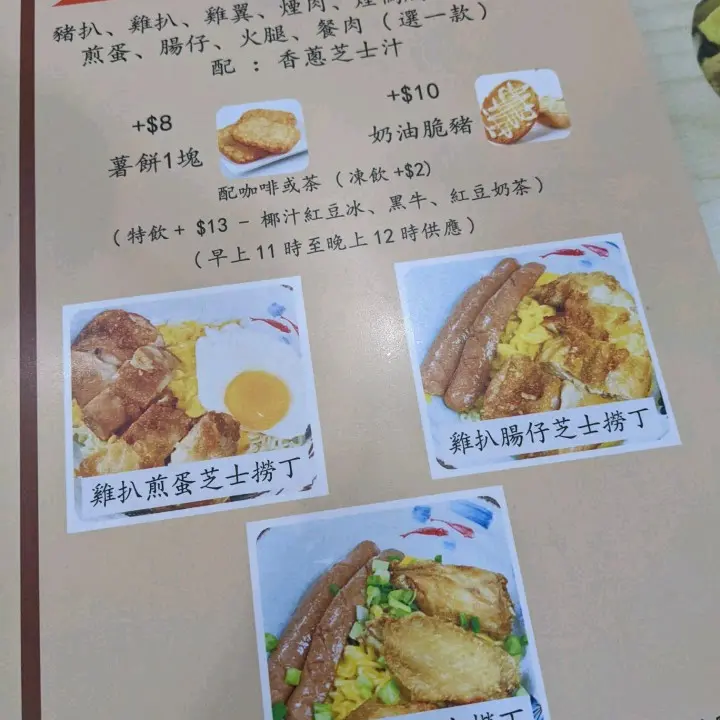 豬扒、雞扒、雞翼、煙肉、
煎蛋、腸仔、火腿、餐肉（選一款）
配 : 香蔥芝士汁
+$8
薯餅1塊
+$10
奶油脆豬
配咖啡或茶（凍飲+$2）
（特飲+ $13 - 椰汁紅豆冰、黑牛、紅豆奶茶）
（早上11時至晚上12時供應）
雞扒煎蛋芝士撈丁
雞扒腸仔芝士撈丁
撈丁